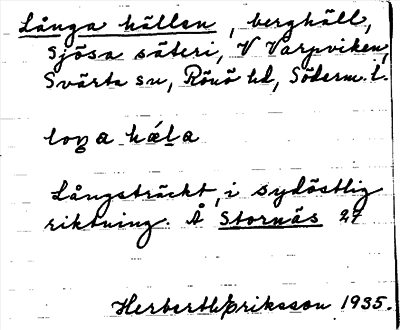 Långa hällen, berghäll,
Sjösa säteri, V Varpviken,
Svärta sn, Rönö hd, Söderm. l.
loŋa hæla
Långsträckt, i sydöstlig
riktning. Å Stornäs 27
Herberth Eriksson 1935.